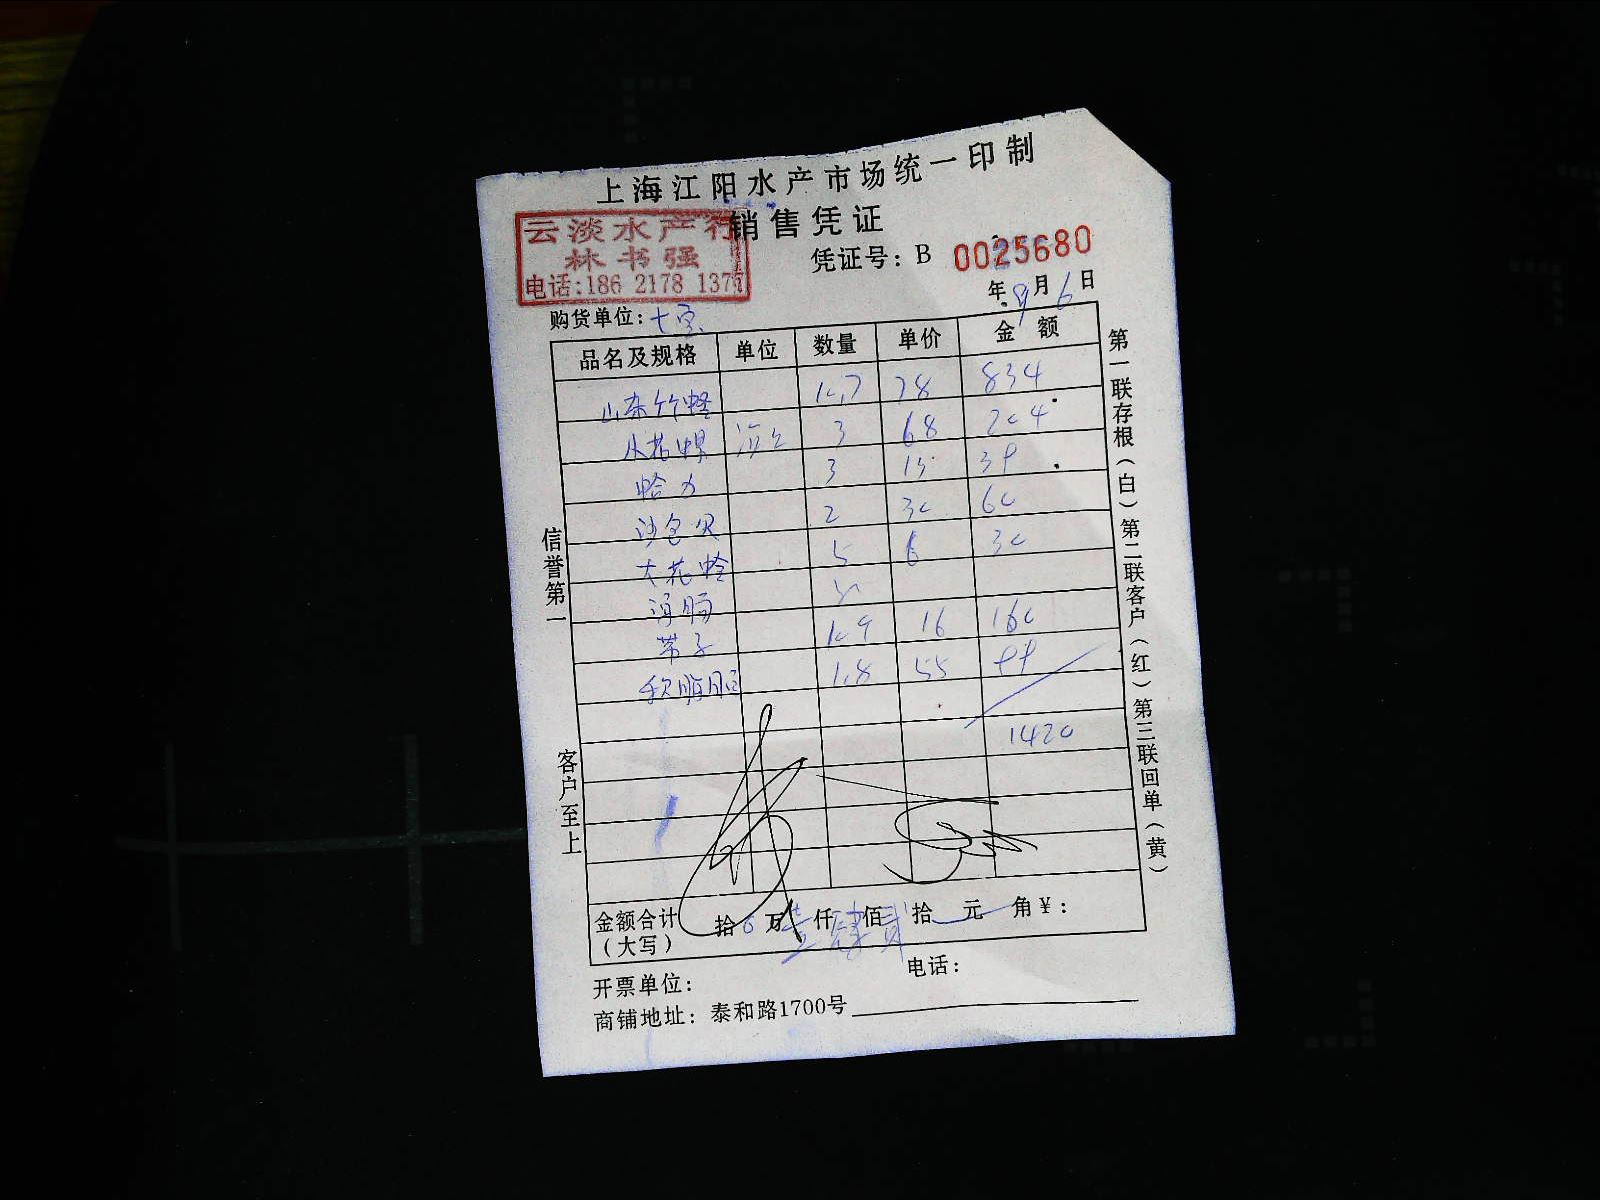 上海江阳水产市场统一印制
销售凭证
云淡水产行
林书强
电话:186 2178 1377
凭证号：B 0025680
年 9月 6日
购货单位：
品名及规格 单位 数量 单价 金额
山东竹蛏 10.7 78 834
3 68 204
哈力 3 13 39
沙包贝 2 30 60
大花蛤 5 6 30
海肠
带子 10.9 16 160
1.8 55 99
1420
金额合计（大写） 拾 万壹仟肆佰贰拾 元 角￥：
开票单位： 电话：
商铺地址：泰和路1700号
信誉第一 客户至上
第一联存根（白）第二联客户（红）第三联回单（黄）